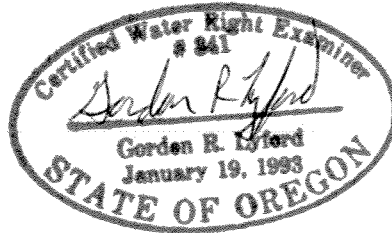 Certified Water Right Examiner
# 841
Gordon R. Lyford
Gordon R. Lyford
January 19, 1993
STATE OF OREGON